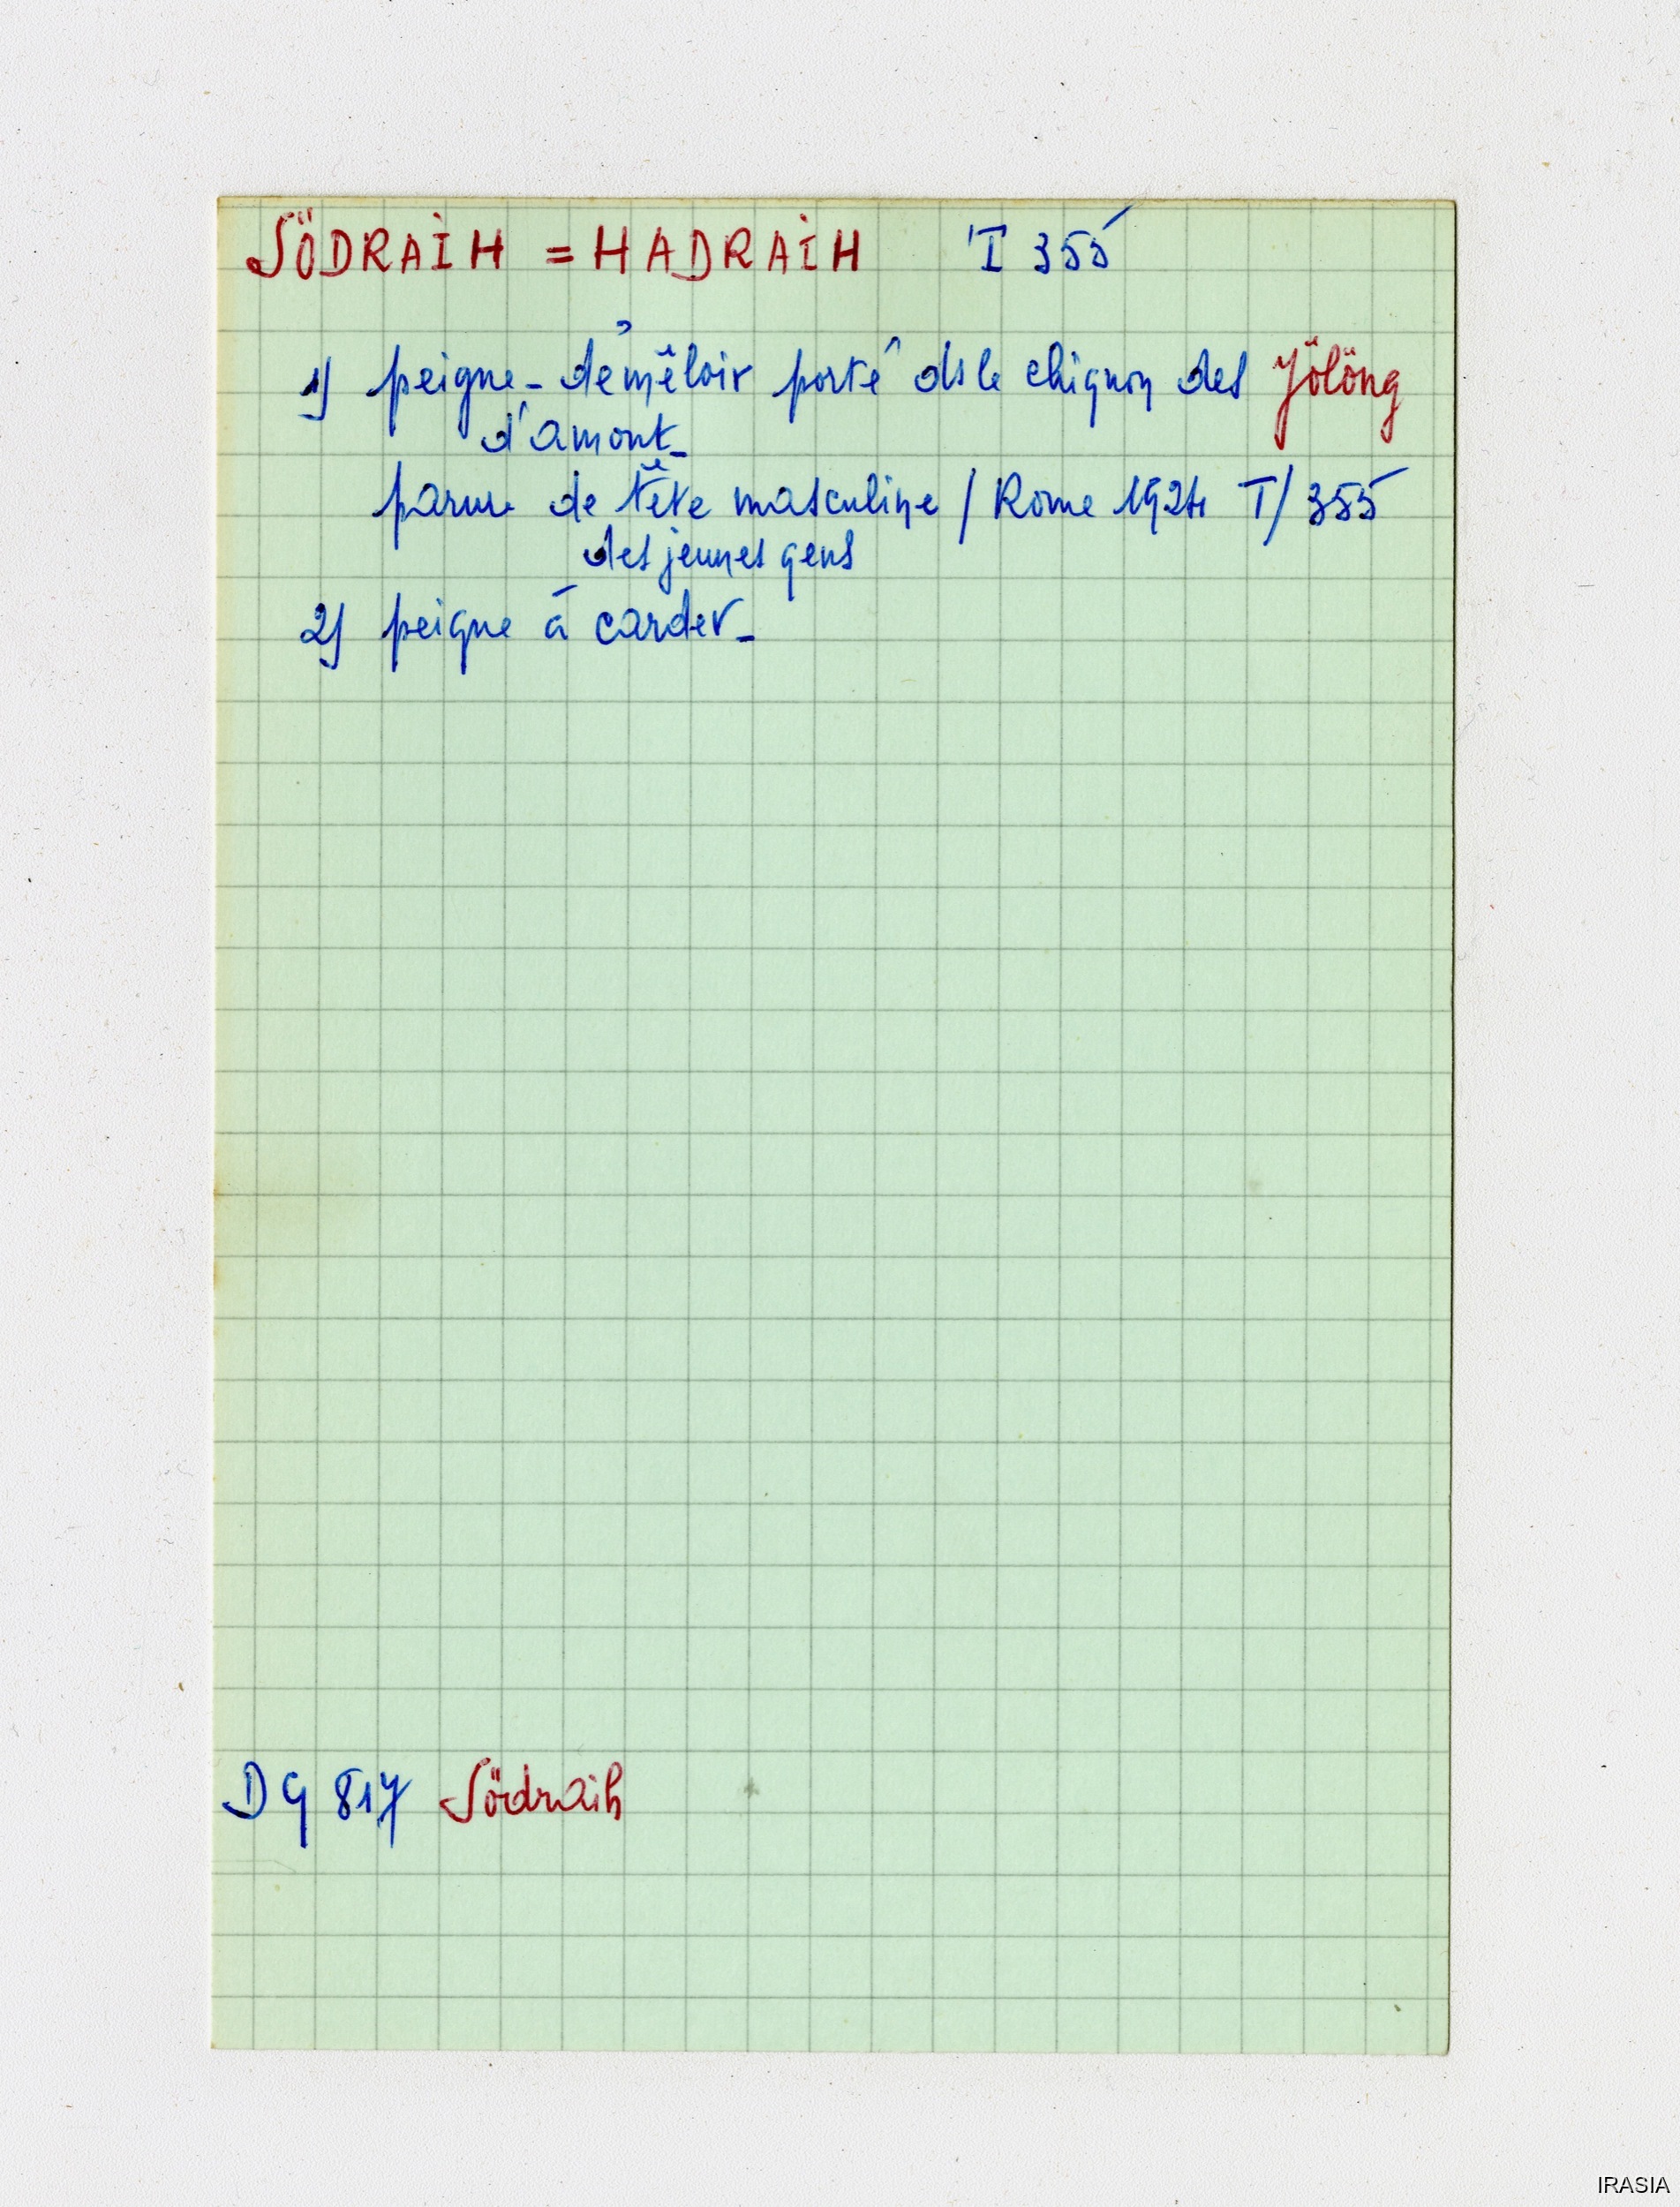 SÖDRAIH = HADRAIH T 355
1) peigne-démêloir porté ds le chignon des Jölöng
d'amont_
parure de tête masculine / Rome 1924 T/355
des jeunes gens
2) peigne à carder_
DG 817 Södraih
IRASIA